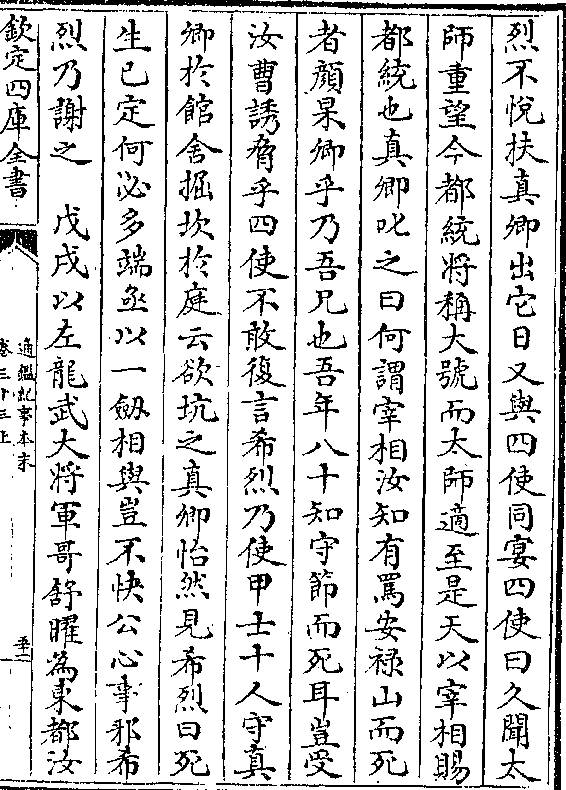 烈不悅扶真卿出它日又與四使同宴四使曰久聞太
師重望今都統將稱大號而太師適至是天以宰相賜
都統也真卿叱之曰何謂宰相汝知有罵安禄山而死
者顏杲卿乎乃吾兄也吾年八十知守節而死耳豈受
汝曹誘脅乎四使不敢復言希烈乃使甲士十人守真
卿於館舍掘坎於庭云欲坑之真卿怡然見希烈曰死
生已定何必多端亟以一劔相與豈不快公心事邪希
烈乃謝之　戊戌以左龍武大将軍哥舒曜為東都汝
欽定四庫全書
通鑑紀事本末
卷三十三上